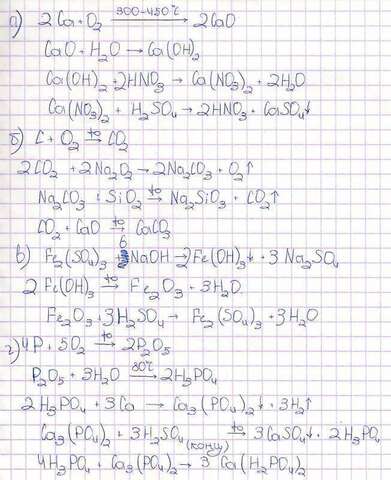 а) 2Ca + O₂ 300-450°C → 2CaO
CaO + H₂O → Ca(OH)₂
Ca(OH)₂ + 2HNO₃ → Ca(NO₃)₂ + 2H₂O
Ca(NO₃)₂ + H₂SO₄ → 2HNO₃ + CaSO₄↓
б) C + O₂ t° → CO₂
2CO₂ + 2Na₂O₂ → 2Na₂CO₃ + O₂↑
Na₂CO₃ + SiO₂ t° → Na₂SiO₃ + CO₂↑
CO₂ + CaO t° → CaCO₃
в) Fe₂(SO₄)₃ + 6NaOH → 2Fe(OH)₃↓ + 3Na₂SO₄
2Fe(OH)₃ t° → Fe₂O₃ + 3H₂O
Fe₂O₃ + 3H₂SO₄ → Fe₂(SO₄)₃ + 3H₂O
г) 4P + 5O₂ t° → 2P₂O₅
P₂O₅ + 3H₂O 80°C → 2H₃PO₄
2H₃PO₄ + 3Ca → Ca₃(PO₄)₂↓ + 3H₂↑
Ca₃(PO₄)₂ + 3H₂SO₄ (конц) t° → 3CaSO₄↓ + 2H₃PO₄
4H₃PO₄ + Ca₃(PO₄)₂ → 3Ca(H₂PO₄)₂